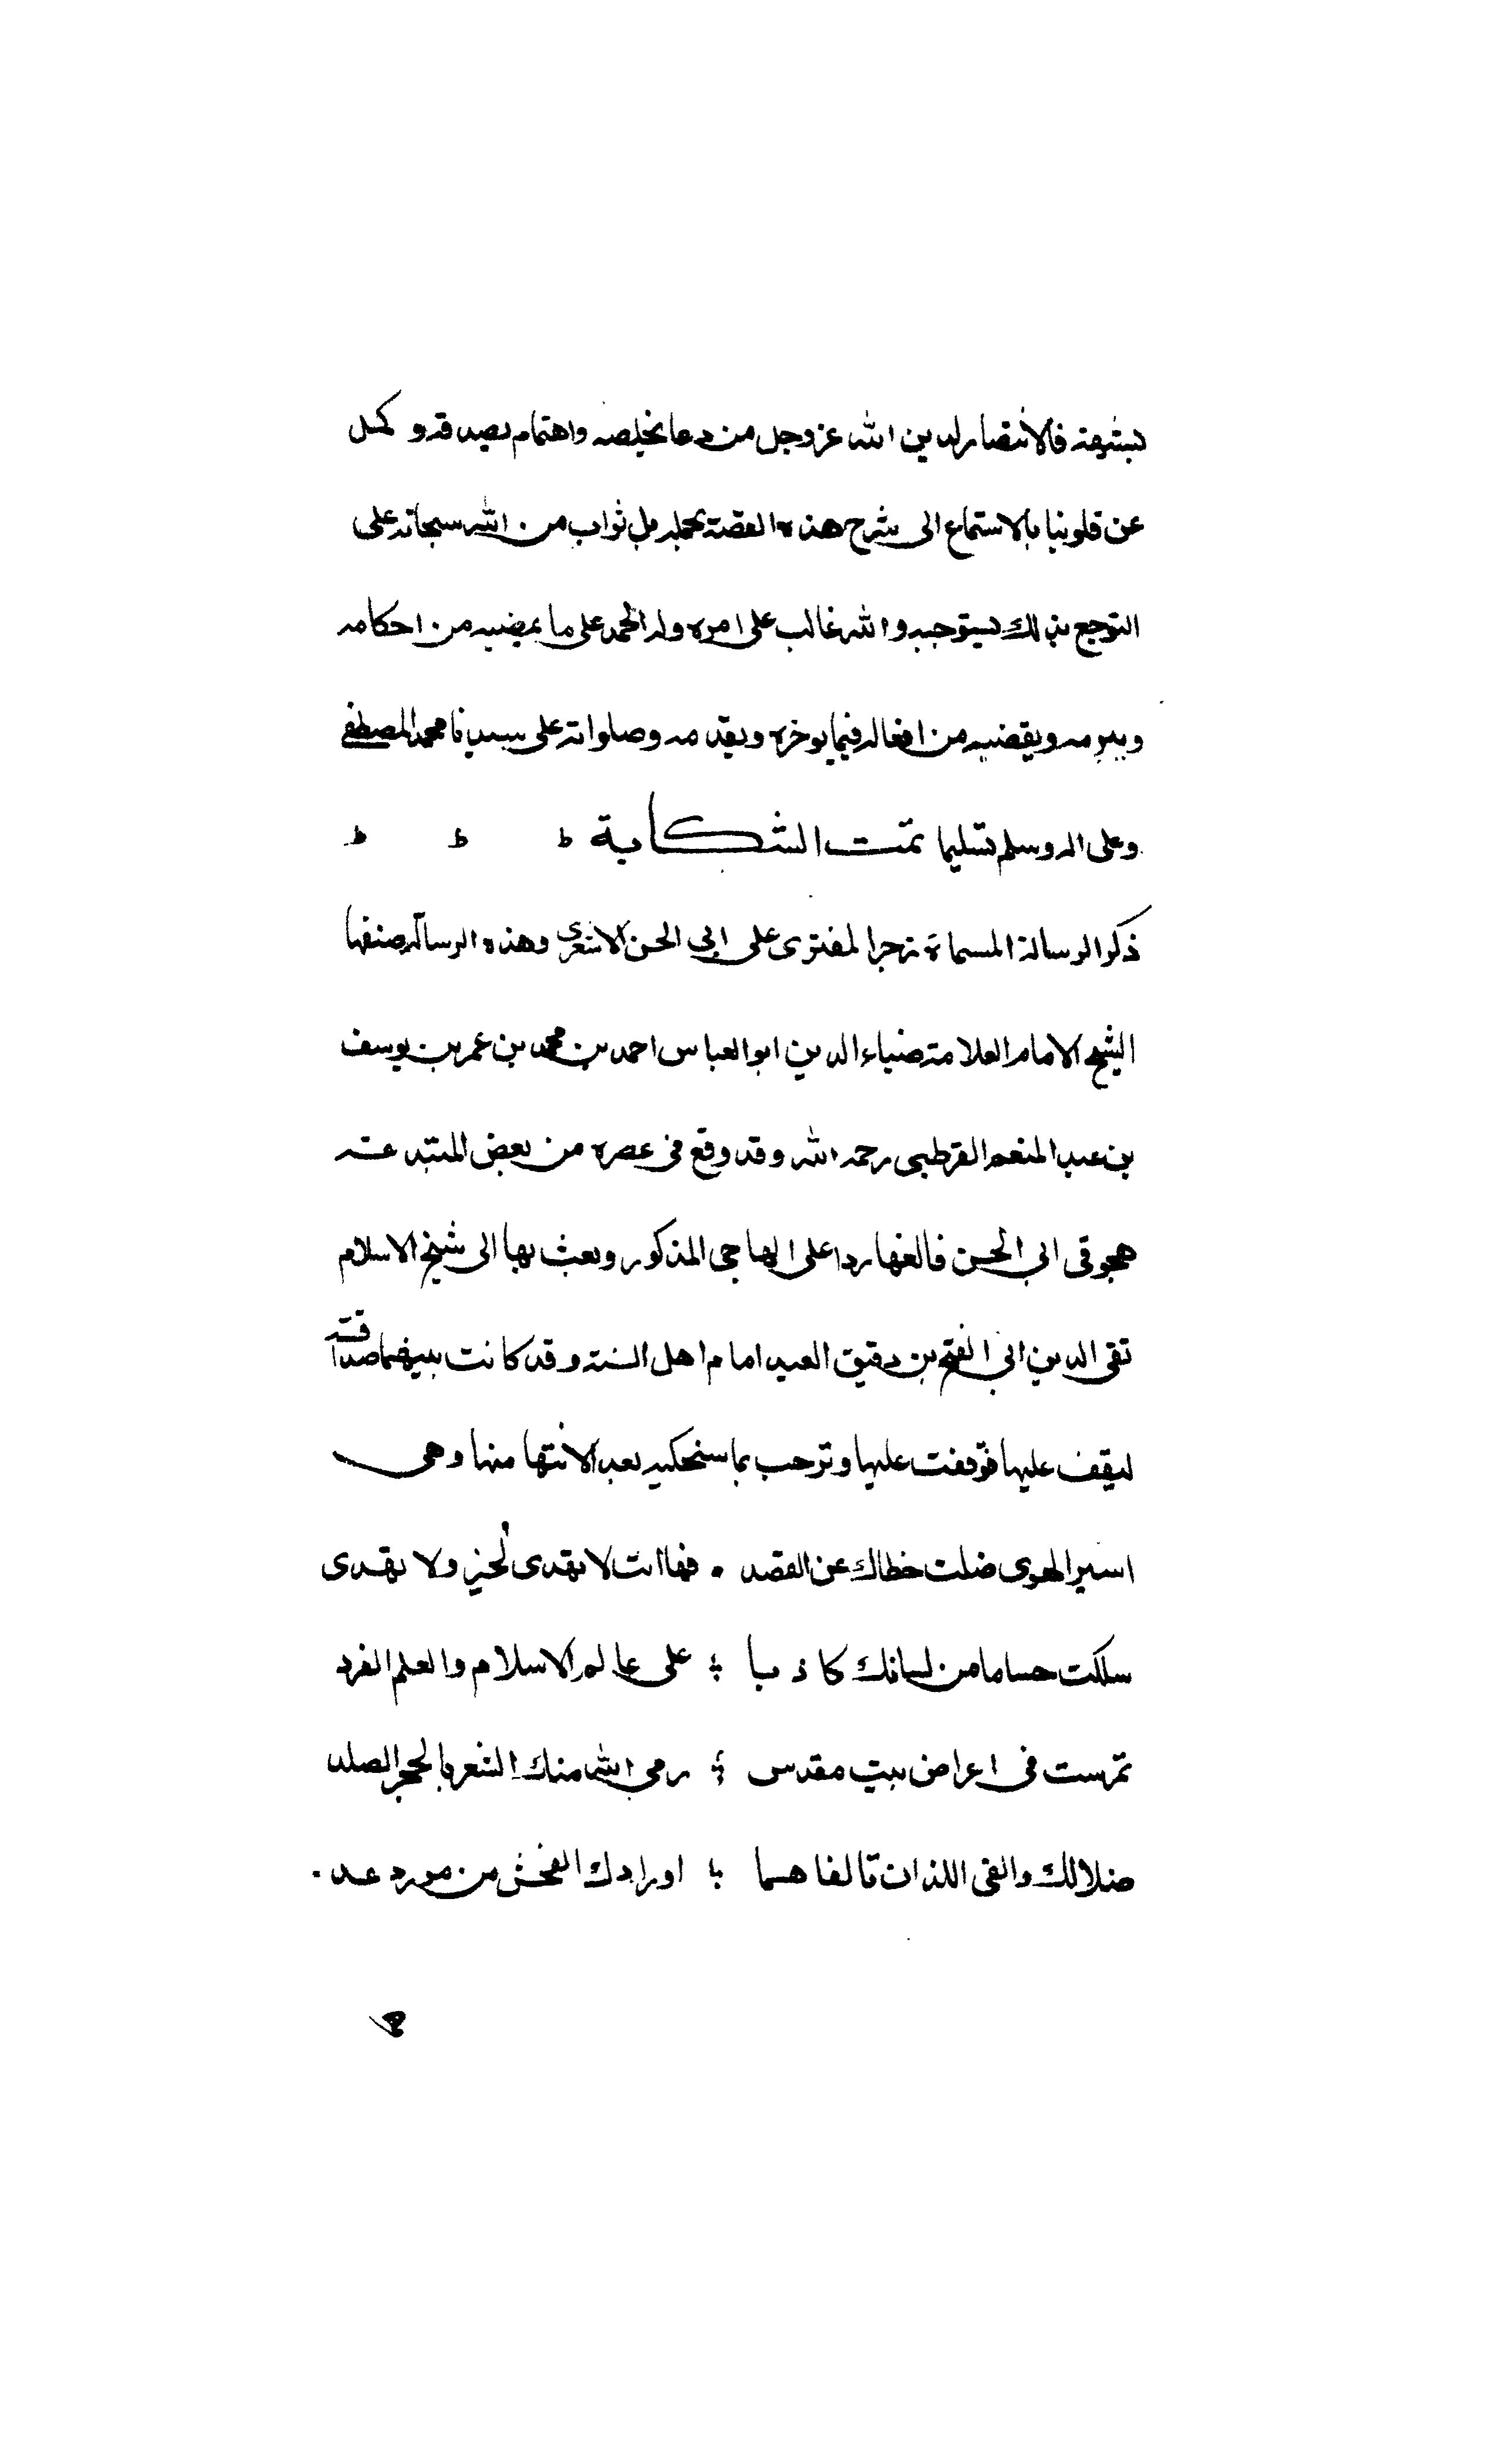 يستبشعه فالانتصار لدين الله عز وجل من دعا يخلصه واهتمام يصدقه و كمل
عن قلوبنا بالاستماع الى شرح هذه القصة يحمله بل ثواب من الله سبحانه على
التوجع بذلك يستوجبه والله غالب على امره وله الحمد على ما يمضيه من احكامه
ويبرمه ويقضيه من افعاله فيما يوخره ويقدمه وصلواته على سيدنا محمد المصطفى
وعلى اله وسلم تسليما تمت الشكاية
ذكر الرسالة المسماة زجر المفترى على ابي الحسن الاشعرى وهذه الرسالة صنفها
الشيخ الامام العلامة ضياء الدين ابو العباس احمد بن محمد بن عمر بن يوسف
بن عبد المنعم القرطبى رحمه الله وقد وقع فى عصره من بعض المبتدعة
هجو فى ابى الحسن فالفها ردا على الهاجى المذكور وبعث بها الى شيخ الاسلام
تقى الدين ابى الفتح بن دقيق العيد امام اهل السنة وقد كانت بينهما صداقة
ليقف عليها فوقفت عليها وترحب بما سنحكيه بعد الانتها منها وهى
اسير الهوى ضلت خطاك عن القصد . فها انت لا تهدى لخير ولا تهدى
سللت حساما من لسانك كاذبا ؛ على عالم الاسلام والعلم الفرد
تمرست فى اعراض بيت مقدس ؛ رمى الله منك الثغر بالحجر الصلد
ضلالك والغى اللذان تالفا هما ؛ اورادك الفحش من مورد عد .